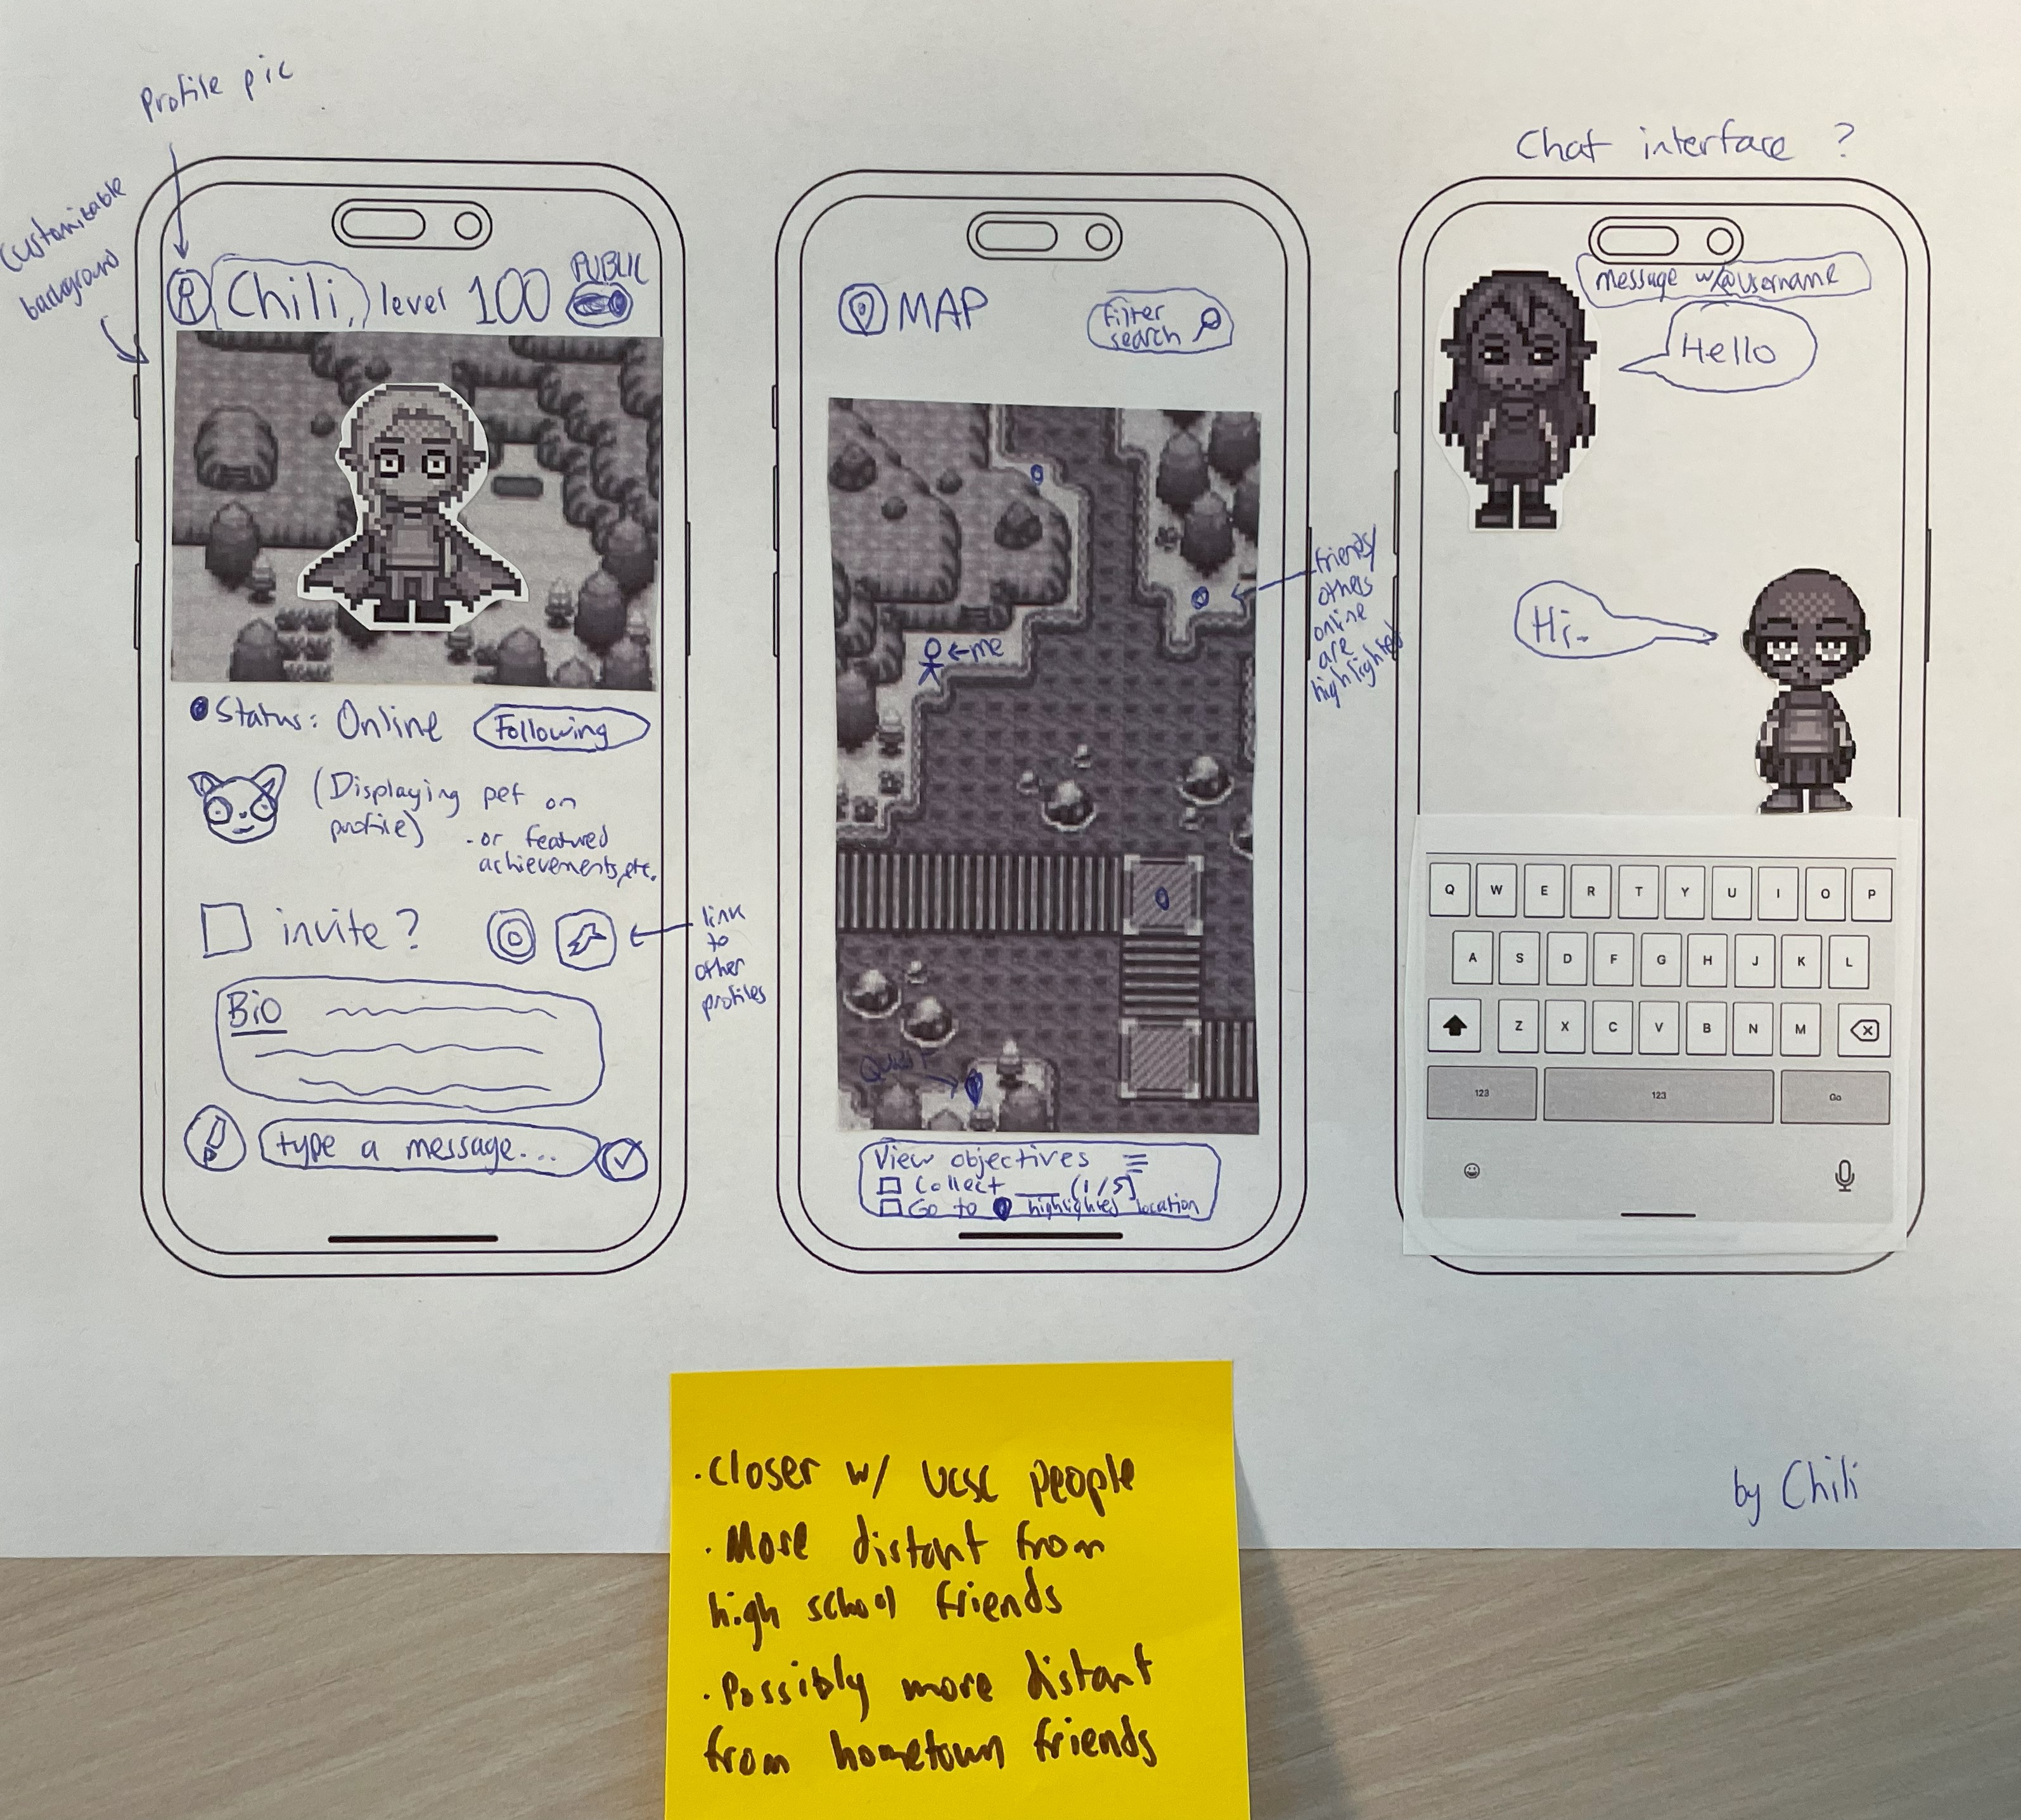 Profile pic
Customizable
background
Chili, level 100
PUBLIC
Status: Online
Following
(Displaying pet on
profile)
-or featured
achievements, etc.
invite?
link
to
other
profiles
Bio
type a message...
MAP
Filter
search
friends/
others
online
are
highlighted
←me
Quest
View objectives
Collect ___ (1/5)
Go to highlighted location
Chat interface ?
message w/@username
Hello
Hi.
Q W E R T Y U I O P
A S D F G H J K L
Z X C V B N M
123 123 Go
by Chili
·Closer w/ UCSC people
·More distant from
high school friends
·Possibly more distant
from hometown friends